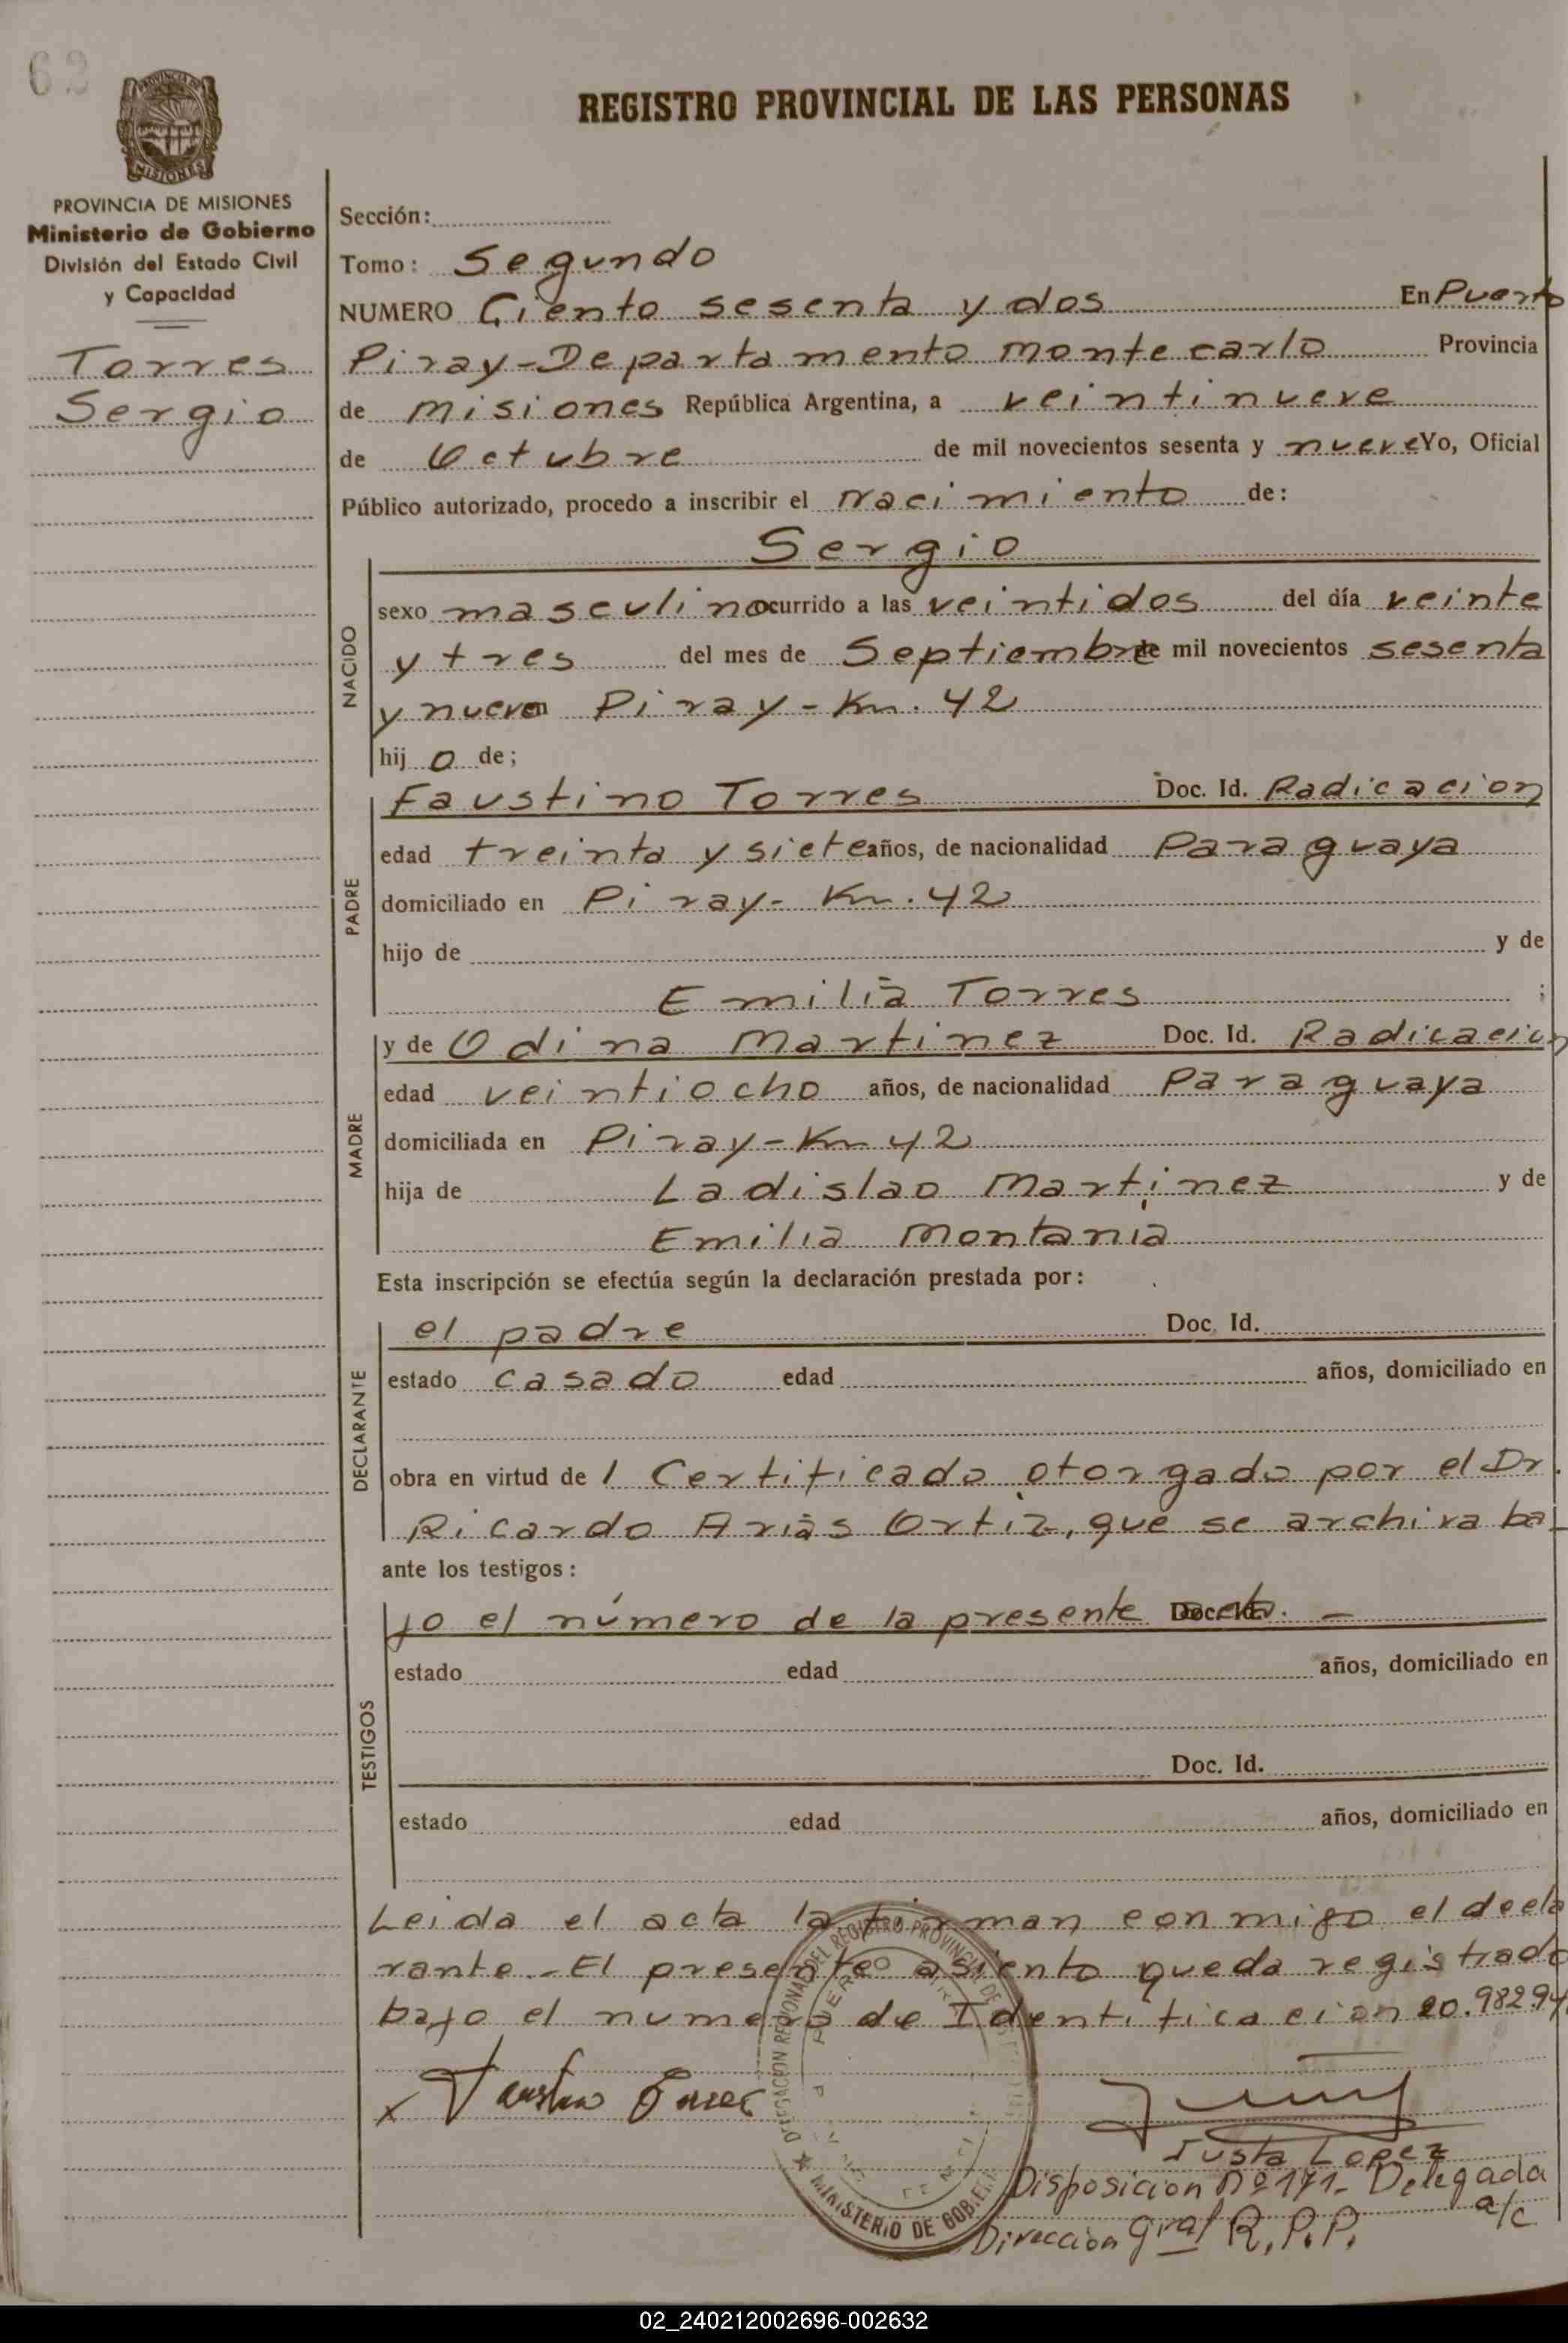 62
REGISTRO PROVINCIAL DE LAS PERSONAS
PROVINCIA DE MISIONES
MISIONES
PROVINCIA DE MISIONES
Ministerio de Gobierno
División del Estado Civil
y Capacidad
Torres
Sergio
Sección:
Tomo: Segundo
NUMERO Ciento sesenta y dos En Puerto
Piray-Departamento Montecarlo Provincia
de Misiones República Argentina, a veintinueve
de Octubre de mil novecientos sesenta y nueve Yo, Oficial
Público autorizado, procedo a inscribir el nacimiento de:
Sergio
NACIDO
sexo masculino ocurrido a las veintidos del día veinte
y tres del mes de Septiembre de mil novecientos sesenta
y nueve en Piray-Km. 42
hij o de;
PADRE
Faustino Torres Doc. Id. Radicacion
edad treinta y siete años, de nacionalidad Paraguaya
domiciliado en Piray- Km. 42
hijo de y de
Emilia Torres ;
MADRE
y de Odina Martinez Doc. Id. Radicacion
edad veintiocho años, de nacionalidad Paraguaya
domiciliada en Piray-Km 42
hija de Ladislao Martinez y de
Emilia Montania
Esta inscripción se efectúa según la declaración prestada por:
DECLARANTE
el padre Doc. Id.
estado casado edad años, domiciliado en
obra en virtud de 1 Certificado otorgado por el Dr.
Ricardo Arias Ortiz, que se archiva ba-
ante los testigos:
TESTIGOS
jo el número de la presente acta. Doc. Id. -
estado edad años, domiciliado en
Doc. Id.
estado edad años, domiciliado en
Leida el acta la firman conmigo el decla
rante.-El presente asiento queda registrado
bajo el numero de Identificacion 20.982.94
x Faustino Torres
DELEGACION REGIONAL DEL REGISTRO PROVINCIAL DE
MINISTERIO DE GOB.
Justa Lopez
Disposicion Nº 171- Delegada
a/c
Direccion Gral R.P.P.
02_240212002696-002632